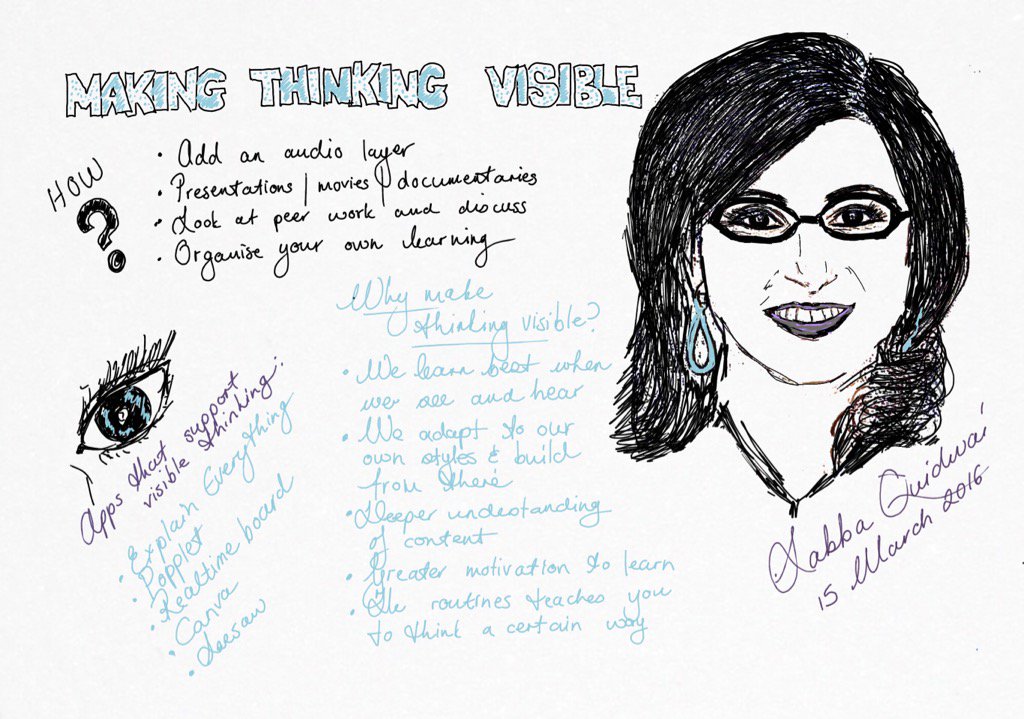 MAKING THINKING VISIBLE
HOW
?
• Add an audio layer
• Presentations | movies | documentaries
• Look at peer work and discuss
• Organise your own learning
Why make
thinking visible?
• We learn best when
we see and hear
• We adapt to our
own styles & build
from there
• Deeper understanding
of content
• Greater motivation to learn
• The routines teaches you
to think a certain way
Apps that support
visible thinking:
• Explain Everything
• Popplet
• Realtime board
• Canva
• Seesaw
Sabba Quidwai
15 March 2016